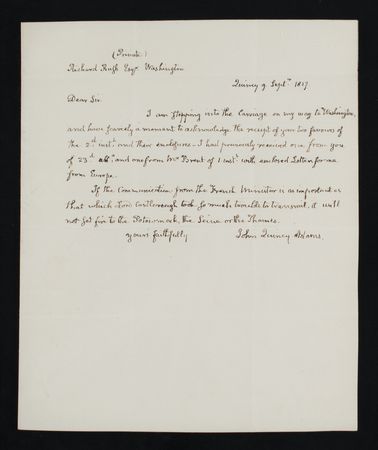 (Private)
Richard Rush Esqr. Washington
Quincy 9. Septr. 1817.
Dear Sir.
I am stepping into the Carriage on my way to Washington,
and have scarcely a moment to acknowledge the receipt of your two favours of
the 2d. inst. and their enclosures. I had previously received one from you
of 23d. ulto. and one from Mr Brent of 1 inst. with enclosed Letters for me
from Europe.
If the Communication from the French Minister is as important as
that which Lord Castlereagh took so much trouble to transmit, it will
not set fire to the Potowmack, the Seine or the Thames.
yours faithfully
John Quincy Adams.